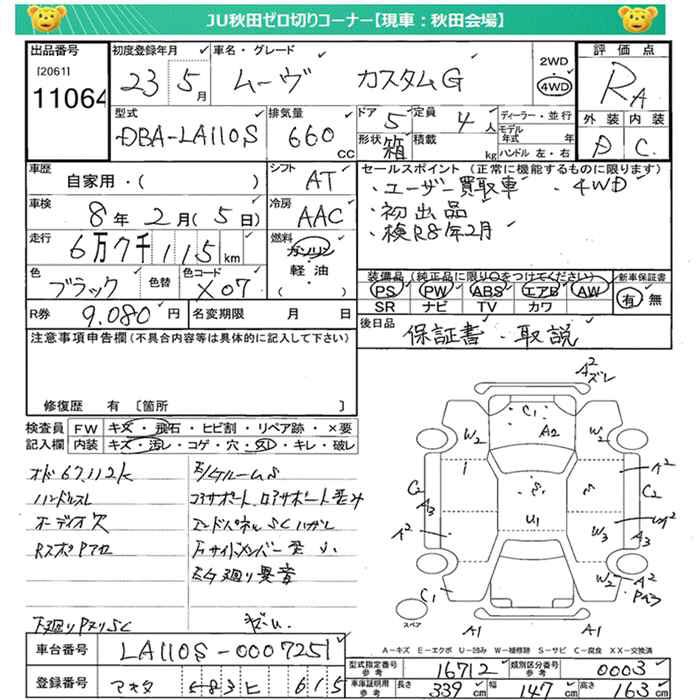 JU秋田ゼロ切りコーナー【現車：秋田会場】
出品番号
[2061]
11064
初度登録年月
23 5月
車名・グレード
ムーヴ カスタムG
2WD
4WD
評価点
RA
外装 内装
D C
型式
DBA-LA110S
排気量
660 CC
ドア 5
形状 箱
定員 4人
積載 kg
ディーラー・並行
モデル年式 年
ハンドル 左・右
車歴
自家用・( )
シフト AT
車検
8年2月(5日)
冷房 AAC
走行
6万7千115km
燃料
ガソリン
軽油
( )
色
ブラック
色替
色コード
X07
R券 9,080円
名変期限 月 日
セールスポイント（正常に機能するものに限ります）
・ユーザー買取車 ・4WD
・初出品
・検R8年2月
装備品（純正品に限り○をつけてください）
PS PW ABS エアB AW
SR ナビ TV カワ
新車保証書
有・無
後日品
保証書・取説
注意事項申告欄（不具合内容等は具体的に記入して下さい）
修復歴 有 〔箇所 〕
検査員記入欄
FW キズ・飛石・ヒビ割・リペア跡・×要
内装 キズ・汚レ・コゲ・穴・欠・キレ・破レ
オド67,112k
ハンドルスレ
オーディオ欠
コアサポート
サイドメンバー
下廻り
SC
A2
ズレ
C1
W2 A2 W2
A2
C2 A3 C2
S S
U1 W3
A2 A3
W2 A2
C1
スペア
A1 A1
A-キズ E-エクボ U-凹み W-補修跡 S-サビ C-腐食 XX-交換済
車台番号
LA110S-0007251
登録番号
615
型式指定番号 参考
16712
類別区分番号 参考
0003
車庫証明用 参考
長さ 339cm 幅 147cm 高さ 163cm